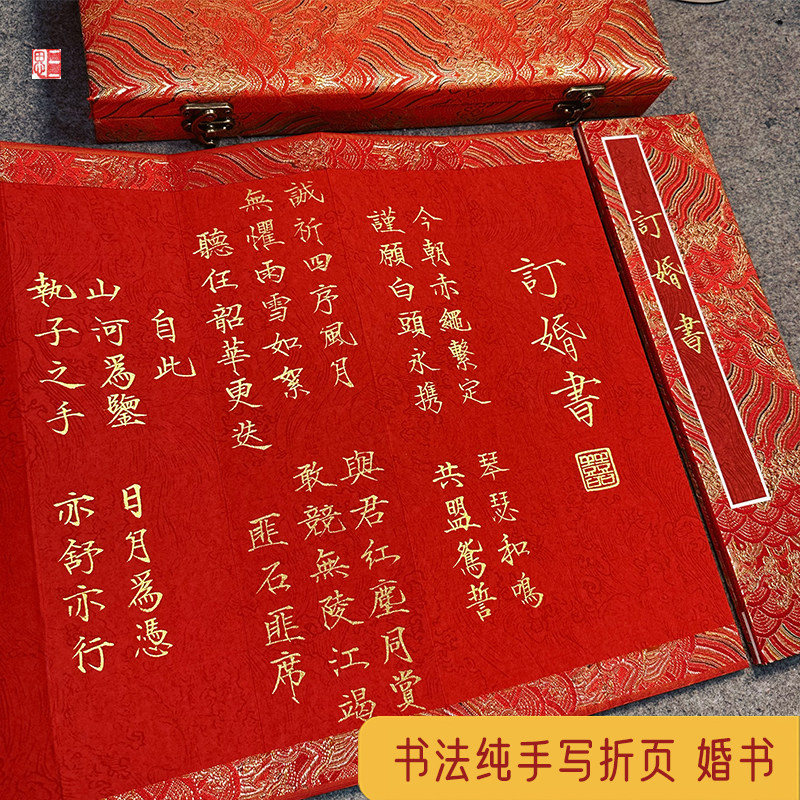 訂婚書
訂婚書
今朝赤繩繫定 琴瑟和鳴
謹願白頭永携 共盟鴛誓
誠祈四序風月 與君紅塵同賞
無懼雨雪如絮 敢競無陵江竭
聽任韶華更迭 匪石匪席
自此
山河爲鑒 日月爲憑
執子之手 亦舒亦行
书法纯手写折页 婚书